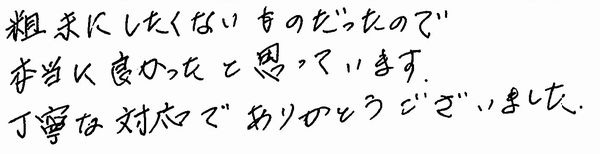 粗末にしたくないものだったので
本当に良かったと思っています.
丁寧な対応でありがとうございました.